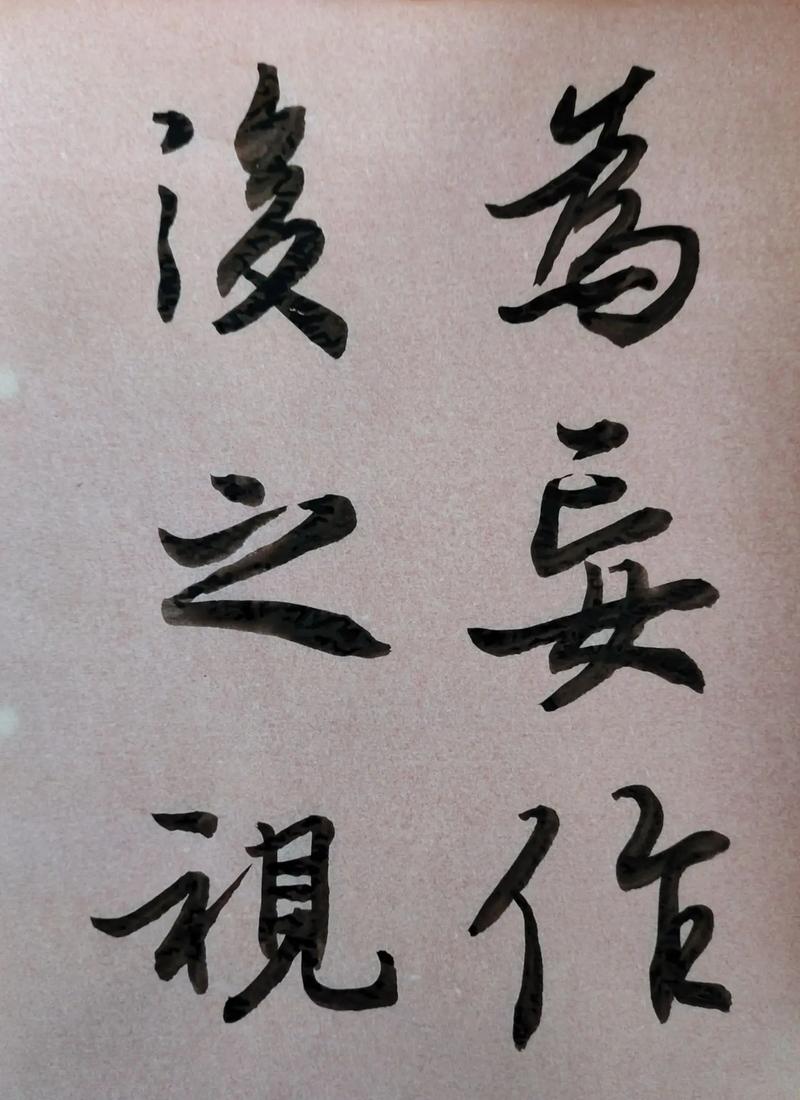 為妄作
後之視